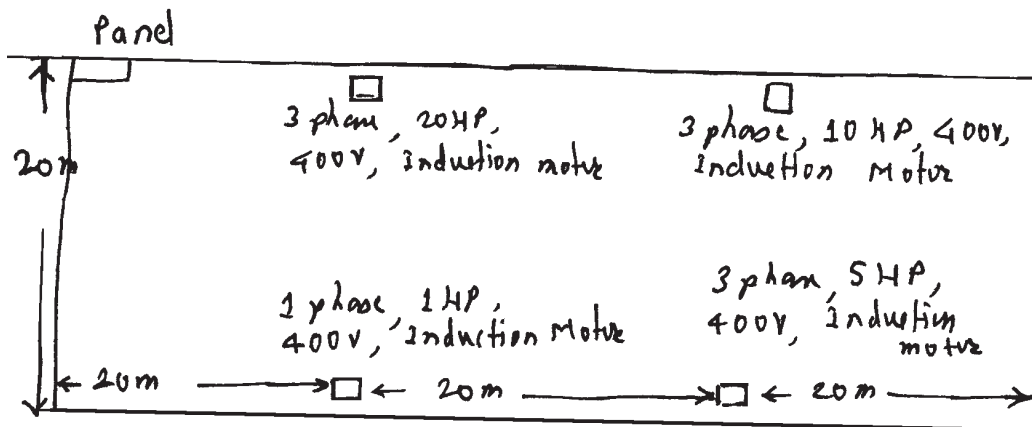 Panel
20m
3 phase, 20HP,
400V, Induction motor
3 phase, 10 HP, 400V,
Induction Motor
1 phase, 1 HP,
400V, Induction Motor
3 phase, 5 HP,
400V, Induction
motor
20m
20m
20m